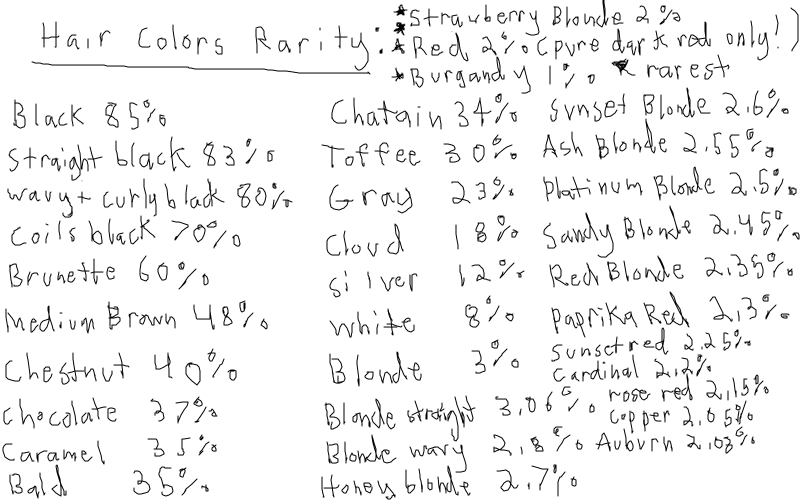 Hair Colors Rarity:
*Strawberry Blonde 2%
*Red 2% (pure dark red only!)
*Burgandy 1% ★ rarest
Black 85%
Straight black 83%
wavy + curly black 80%
Coils black 70%
Brunette 60%
Medium Brown 48%
Chestnut 40%
Chocolate 37%
Caramel 35%
Bald 35%
Chatain 34%
Toffee 30%
Gray 23%
Cloud 18%
silver 12%
white 8%
Blonde 3%
Blonde straight 3.06%
Blonde wavy 2.8%
Honey blonde 2.7%
Sunset Blonde 2.6%
Ash Blonde 2.55%
Platinum Blonde 2.5%
Sandy Blonde 2.45%
Red Blonde 2.35%
Paprika Red 2.3%
Sunset red 2.25%
Cardinal 2.2%
rose red 2.15%
Copper 2.05%
Auburn 2.03%